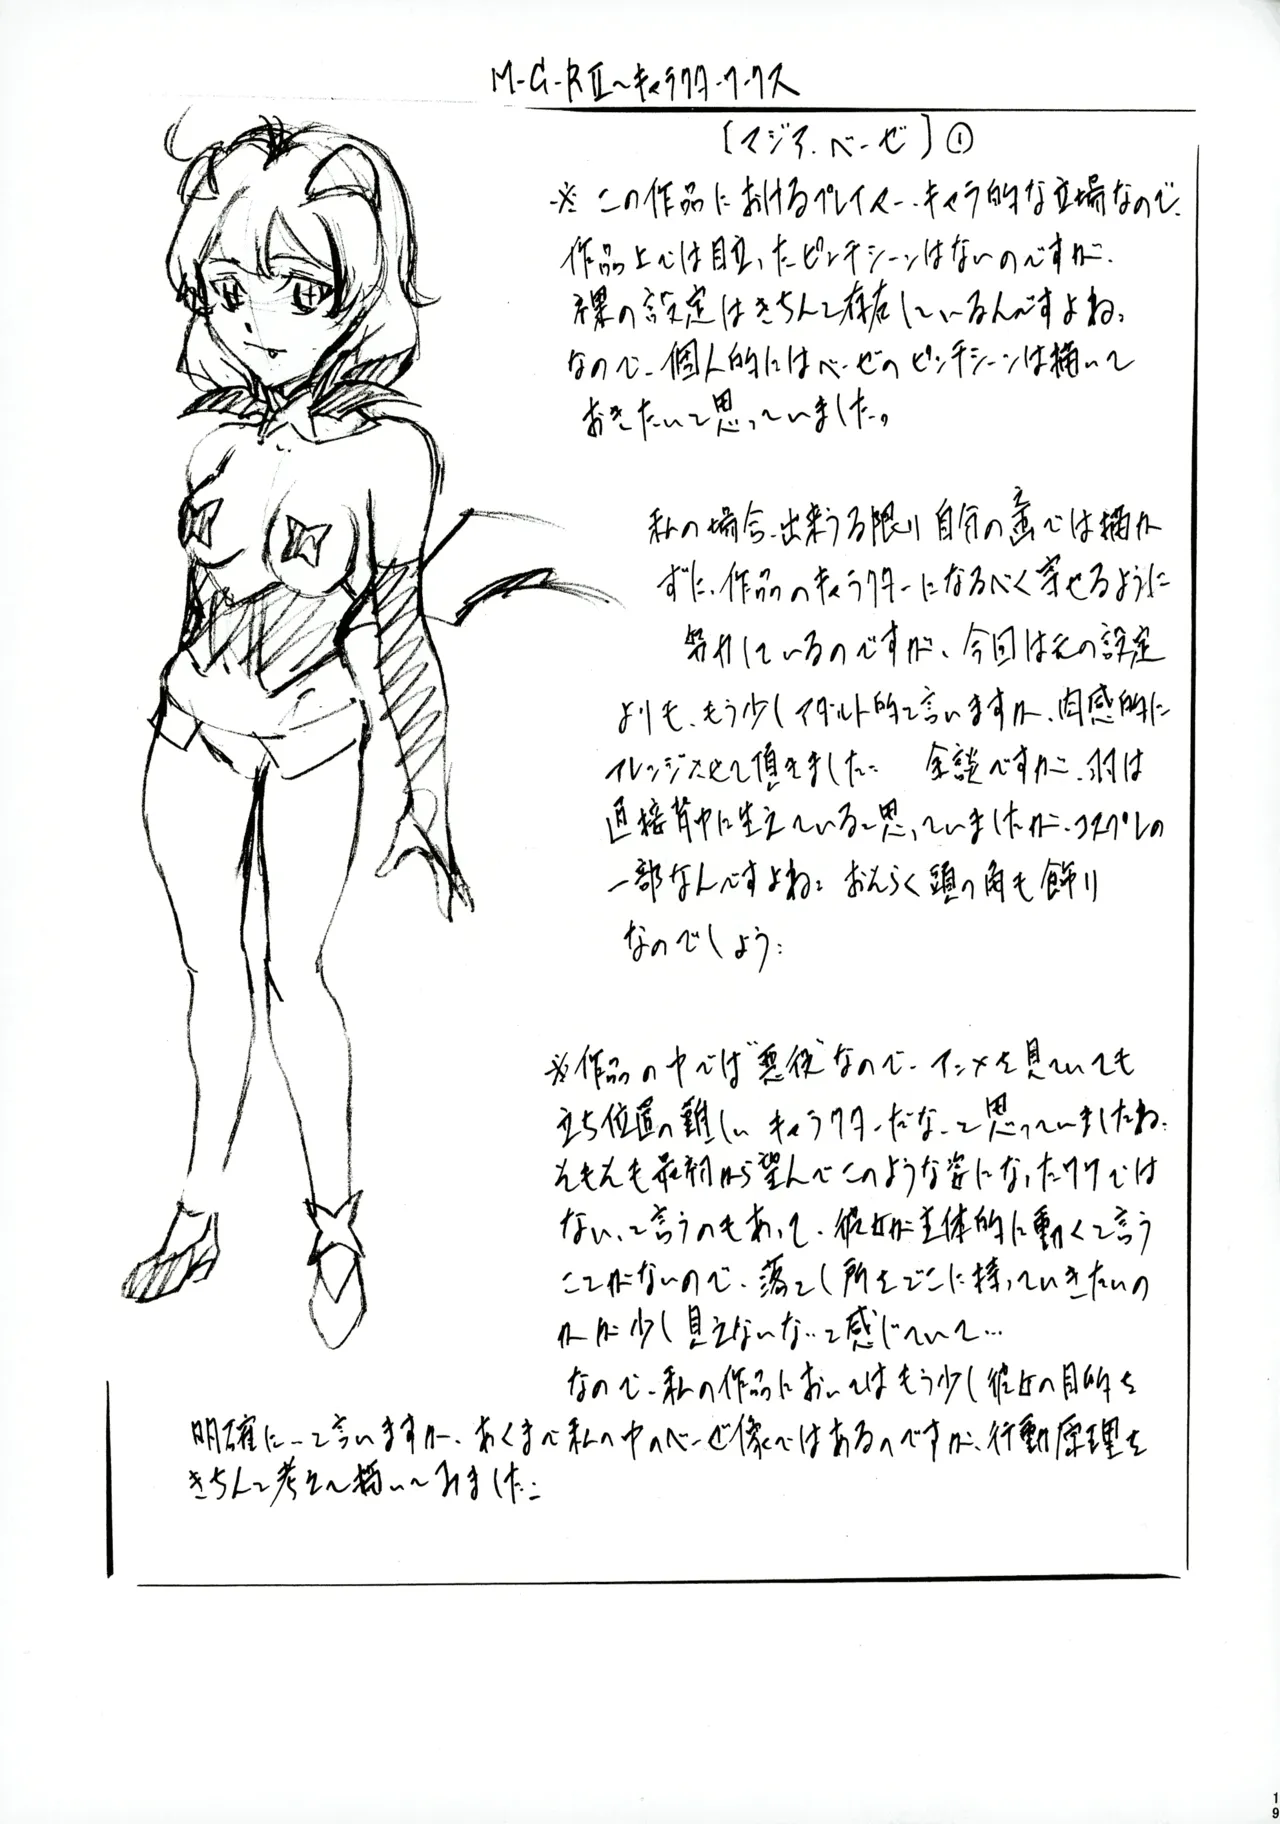 M-G-R II～キャラクターワークス
[マジア・ベーゼ] ①
※この作品におけるプレイヤー・キャラ的な立場なので、
作品上では目立ったピンチシーンはないのですが、
裸の設定はきちんと存在しているんですよね。
なので、個人的にはベーゼのピンチシーンは描いて
おきたいと思っていました。
私の場合、出来うる限り自分の画では描か
ずに、作品のキャラクターになるべく寄せるように
努力しているのですが、今回は元の設定
よりも、もう少しアダルト的と言いますか、肉感的に
アレンジさせて頂きました。 余談ですが、羽は
直接背中に生えていると思っていましたが、コスプレの
一部なんですよね。おそらく頭の角も飾り
なのでしょう。
※作品の中では“悪役”なので、アニメを見ていても
立ち位置の難しいキャラクターだなーと思っていましたね。
そもそも最初から望んでこのような姿になったワケでは
ない、と言うのもあって、彼女が主体的に動くと言う
ことがないので、落とし所をどこに持っていきたいの
かが少し見えないな…と感じていて…
なので、私の作品においてはもう少し彼女の目的を
明確に…と言いますか、あくまで私の中のベーゼ像ではあるのですが、行動原理を
きちんと考えて描いてみました。
19